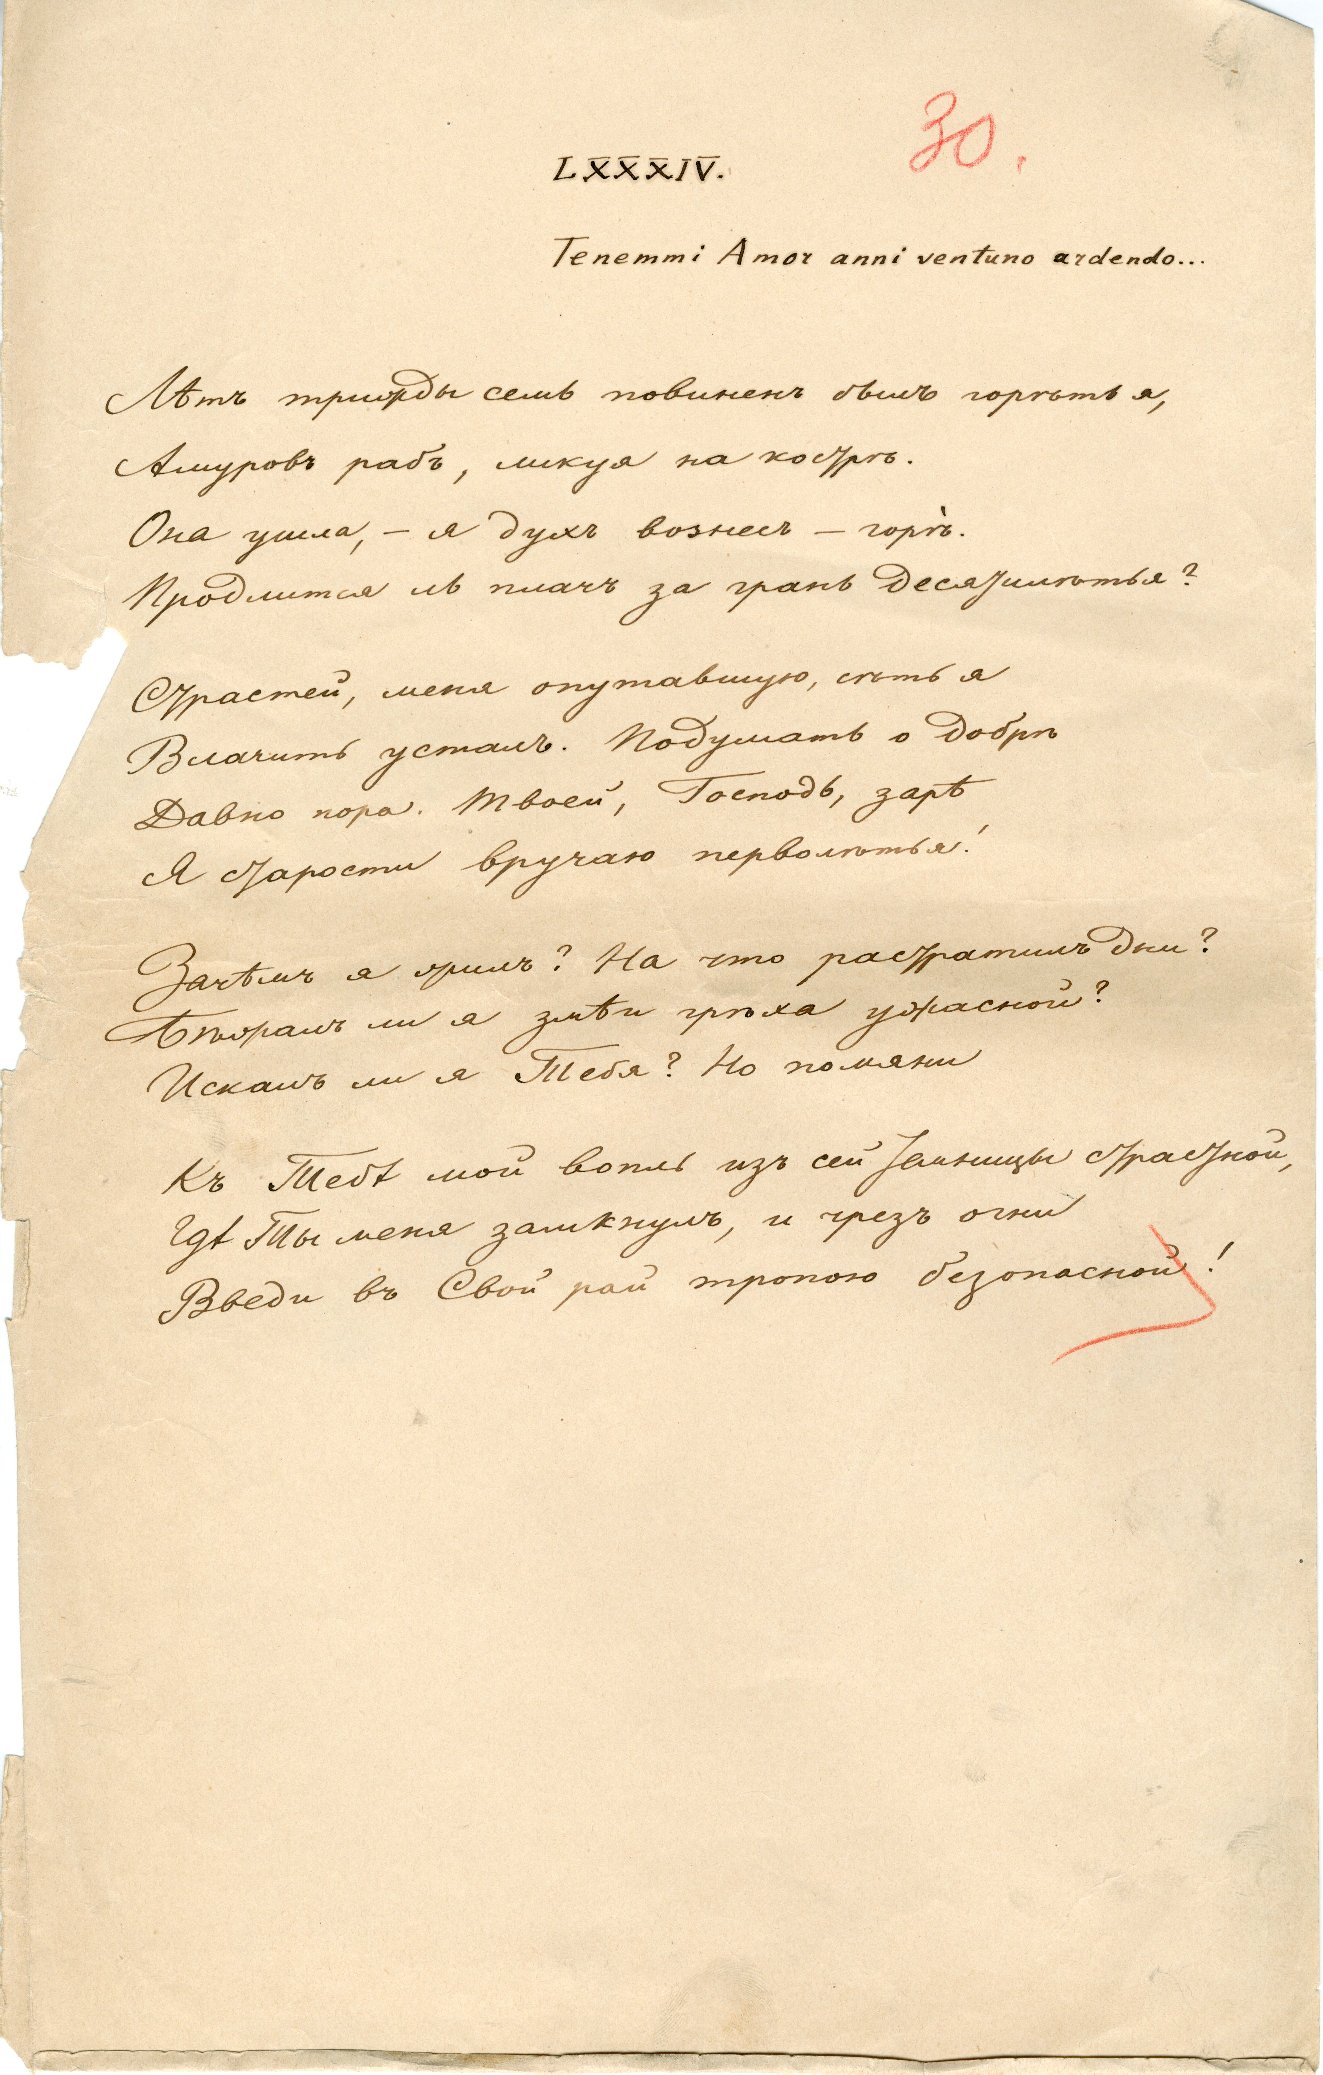 30.
LXXXIV.
Tenemmi Amor anni ventuno ardendo...
Лѣтъ трижды семь повиненъ былъ горѣть я,
Амуровъ рабъ, ликуя на кострѣ.
Она ушла, – я духъ вознесъ – горѣ̀.
Продлится ль плачъ за грань десятилѣтья?
Страстей, меня опутавшую, сѣть я
Влачить усталъ. Подумать о добрѣ
Давно пора. Твоей, Господь, зарѣ
Я старости вручаю перволѣтья!
Зачѣмъ я жилъ? На что растратилъ дни?
Бѣжалъ ли я змѣи грѣха ужасной?
Искалъ ли я Тебя? Но помяни
Къ Тебѣ мой вопль изъ сей темницы страстной,
Гдѣ Ты меня замкнулъ, и чрезъ огни
Введи въ Свой рай тропою безопасной!